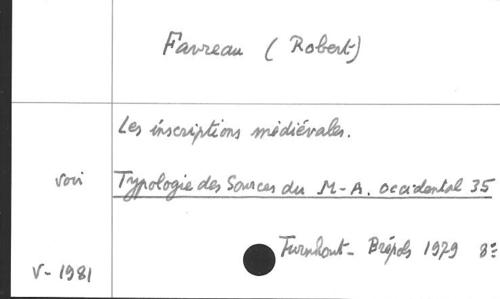 Favreau (Robert)
Les inscriptions médiévales.
voir Typologie des Sources du M-A. occidental 35
Turnhout- Brépols 1979 8º
V- 1981